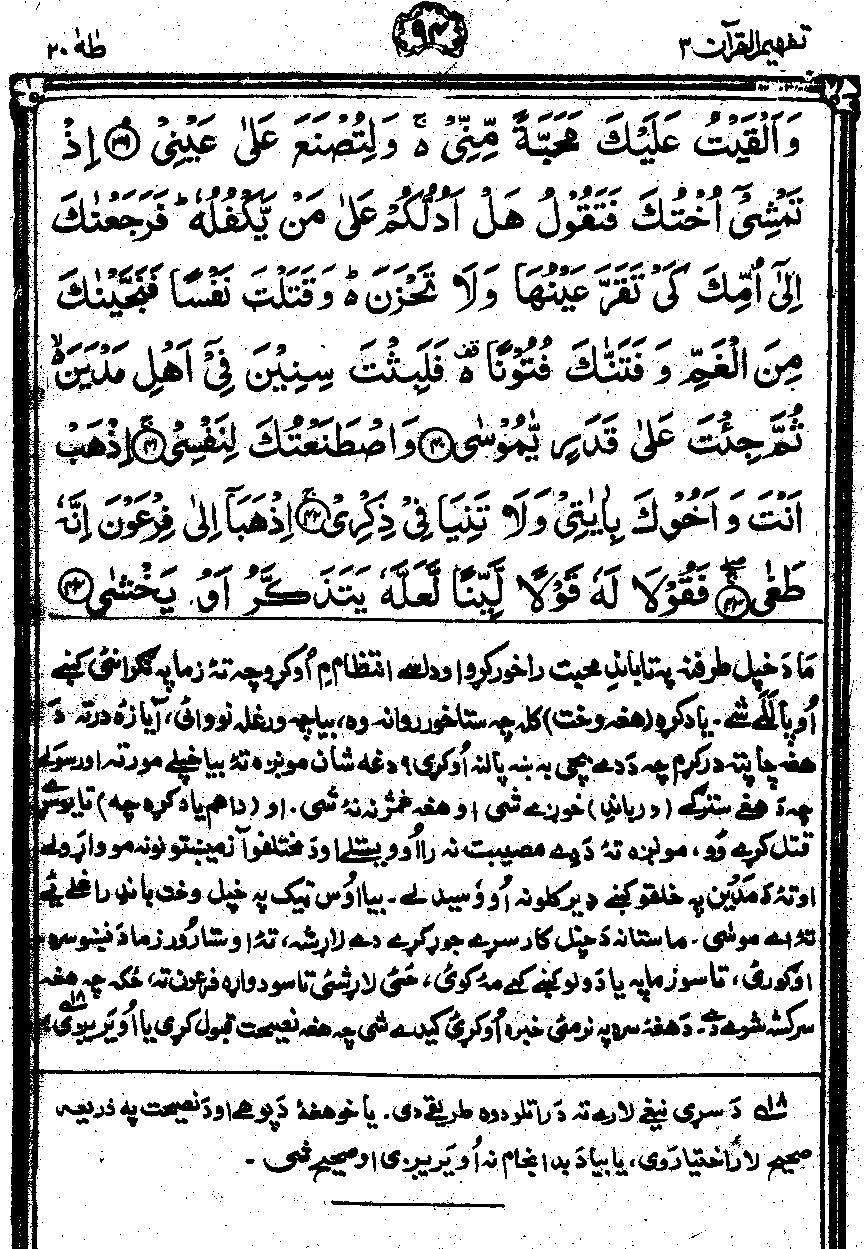 تفهیم القرآن ۳
۹۴
طٰهٰ ۲۰
وَاَلْقَيْتُ عَلَيْكَ مَحَبَّةً مِّنِّيْ ەۚ وَلِتُصْنَعَ عَلٰى عَيْنِيْ ﴿۳۹﴾ اِذْ
تَمْشِيْٓ اُخْتُكَ فَتَقُوْلُ هَلْ اَدُلُّكُمْ عَلٰى مَنْ يَّكْفُلُهٗ ؕ فَرَجَعْنٰكَ
اِلٰٓى اُمِّكَ كَيْ تَقَرَّ عَيْنُهَا وَلَا تَحْزَنَ ەؕ وَقَتَلْتَ نَفْسًا فَنَجَّيْنٰكَ
مِنَ الْغَمِّ وَ فَتَنّٰكَ فُتُوْنًا ەقف فَلَبِثْتَ سِنِيْنَ فِيْٓ اَهْلِ مَدْيَنَ ەۙ
ثُمَّ جِئْتَ عَلٰى قَدَرٍ يّٰمُوْسٰى ﴿۴۰﴾ وَاصْطَنَعْتُكَ لِنَفْسِيْ ﴿۴۱﴾ اِذْهَبْ
اَنْتَ وَ اَخُوْكَ بِاٰيٰتِيْ وَلَا تَنِيَا فِيْ ذِكْرِيْ ﴿۴۲﴾ اِذْهَبَآ اِلٰى فِرْعَوْنَ اِنَّهٗ
طَغٰى ﴿۴۳﴾ فَقُوْلَا لَهٗ قَوْلًا لَّيِّنًا لَّعَلَّهٗ يَتَذَكَّرُ اَوْ يَخْشٰى ﴿۴۴﴾
ما دَ خپل طرفنه په تا باندِ محبت راخور کړو او داسے انتظام مِ اُوکړو چه تهٔ زما په نګرانئ کښے
اُوپاللے شے۔ یاد کړه (هغه وخت) کله چه ستا خور روانه وه، بیا چه ورغله نو وائی، آیا زهٔ درته دَ
هغه چا پته درکړم چه دَ دے بچی به ښه پالنه اُوکړی؟ دغه شان مونږه تهٔ بیا خپلے مور ته اورسولے
چه دَ هغے سترګے (درباندِ) خوږے شی او هغه غمژنه نهٔ شی۔ او (دا هم یاد کړه چه) تا یو سړے
قتل کړے وو، مونږه تهٔ دَ دے مصیبت نه رااُوویستلے او دَ مختلفو آزمیښتونو نه مو واړولے
او تهٔ دَ مَدْیَن په خلقو کښے ډیر کلونه اُوْ وسیدلے۔ بیا اوس ټیک په خپل وخت باندِ راغلے یئے
تهٔ اے موسٰی۔ ما ستا نه دَ خپل کار سړے جوړ کړے دے لاړشه، تهٔ او ستا رُور زما دَ نښو سره
اوګورئ، تاسو زما په یادَولو کښے کمے مهٔ کوئ، ځئ لاړشئ تاسو دواړه فرعون ته، ځکه چه هغه
سرکشه شوے دے۔ دَ هغهٔ سره په نرمئ خبره اُوکړئ کیدے شی چه هغه نصیحت قبول کړی یا اُویَریږی ۱۸
۱۸ دَ سړی نیغے لارے ته دَ راتلو دوه طریقے دی۔ یا خو هغهٔ دَ پوهے او دَ نصیحت په ذریعه
صحیح لار اختیاروی، یا بیا دَ بد انجام نه اُویَریږی او صحیح شی۔